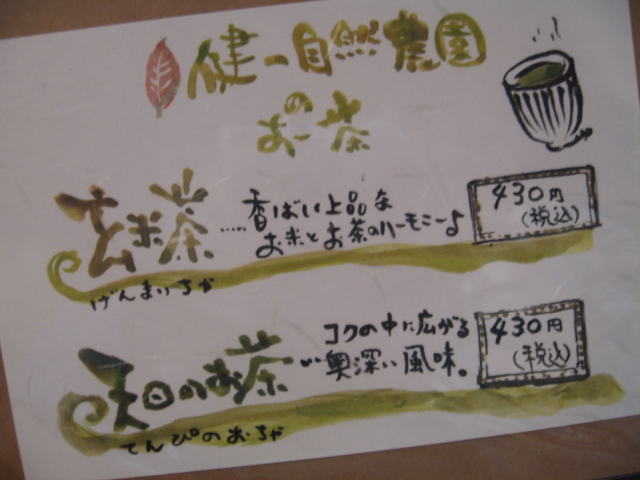 健一自然農園
のお茶
玄米茶
げんまいちゃ
……香ばしい上品な
お米とお茶のハーモニー♪
430円
(税込)
天日のお茶
てんぴのおちゃ
コクの中に広がる
…奥深い風味。
430円
(税込)